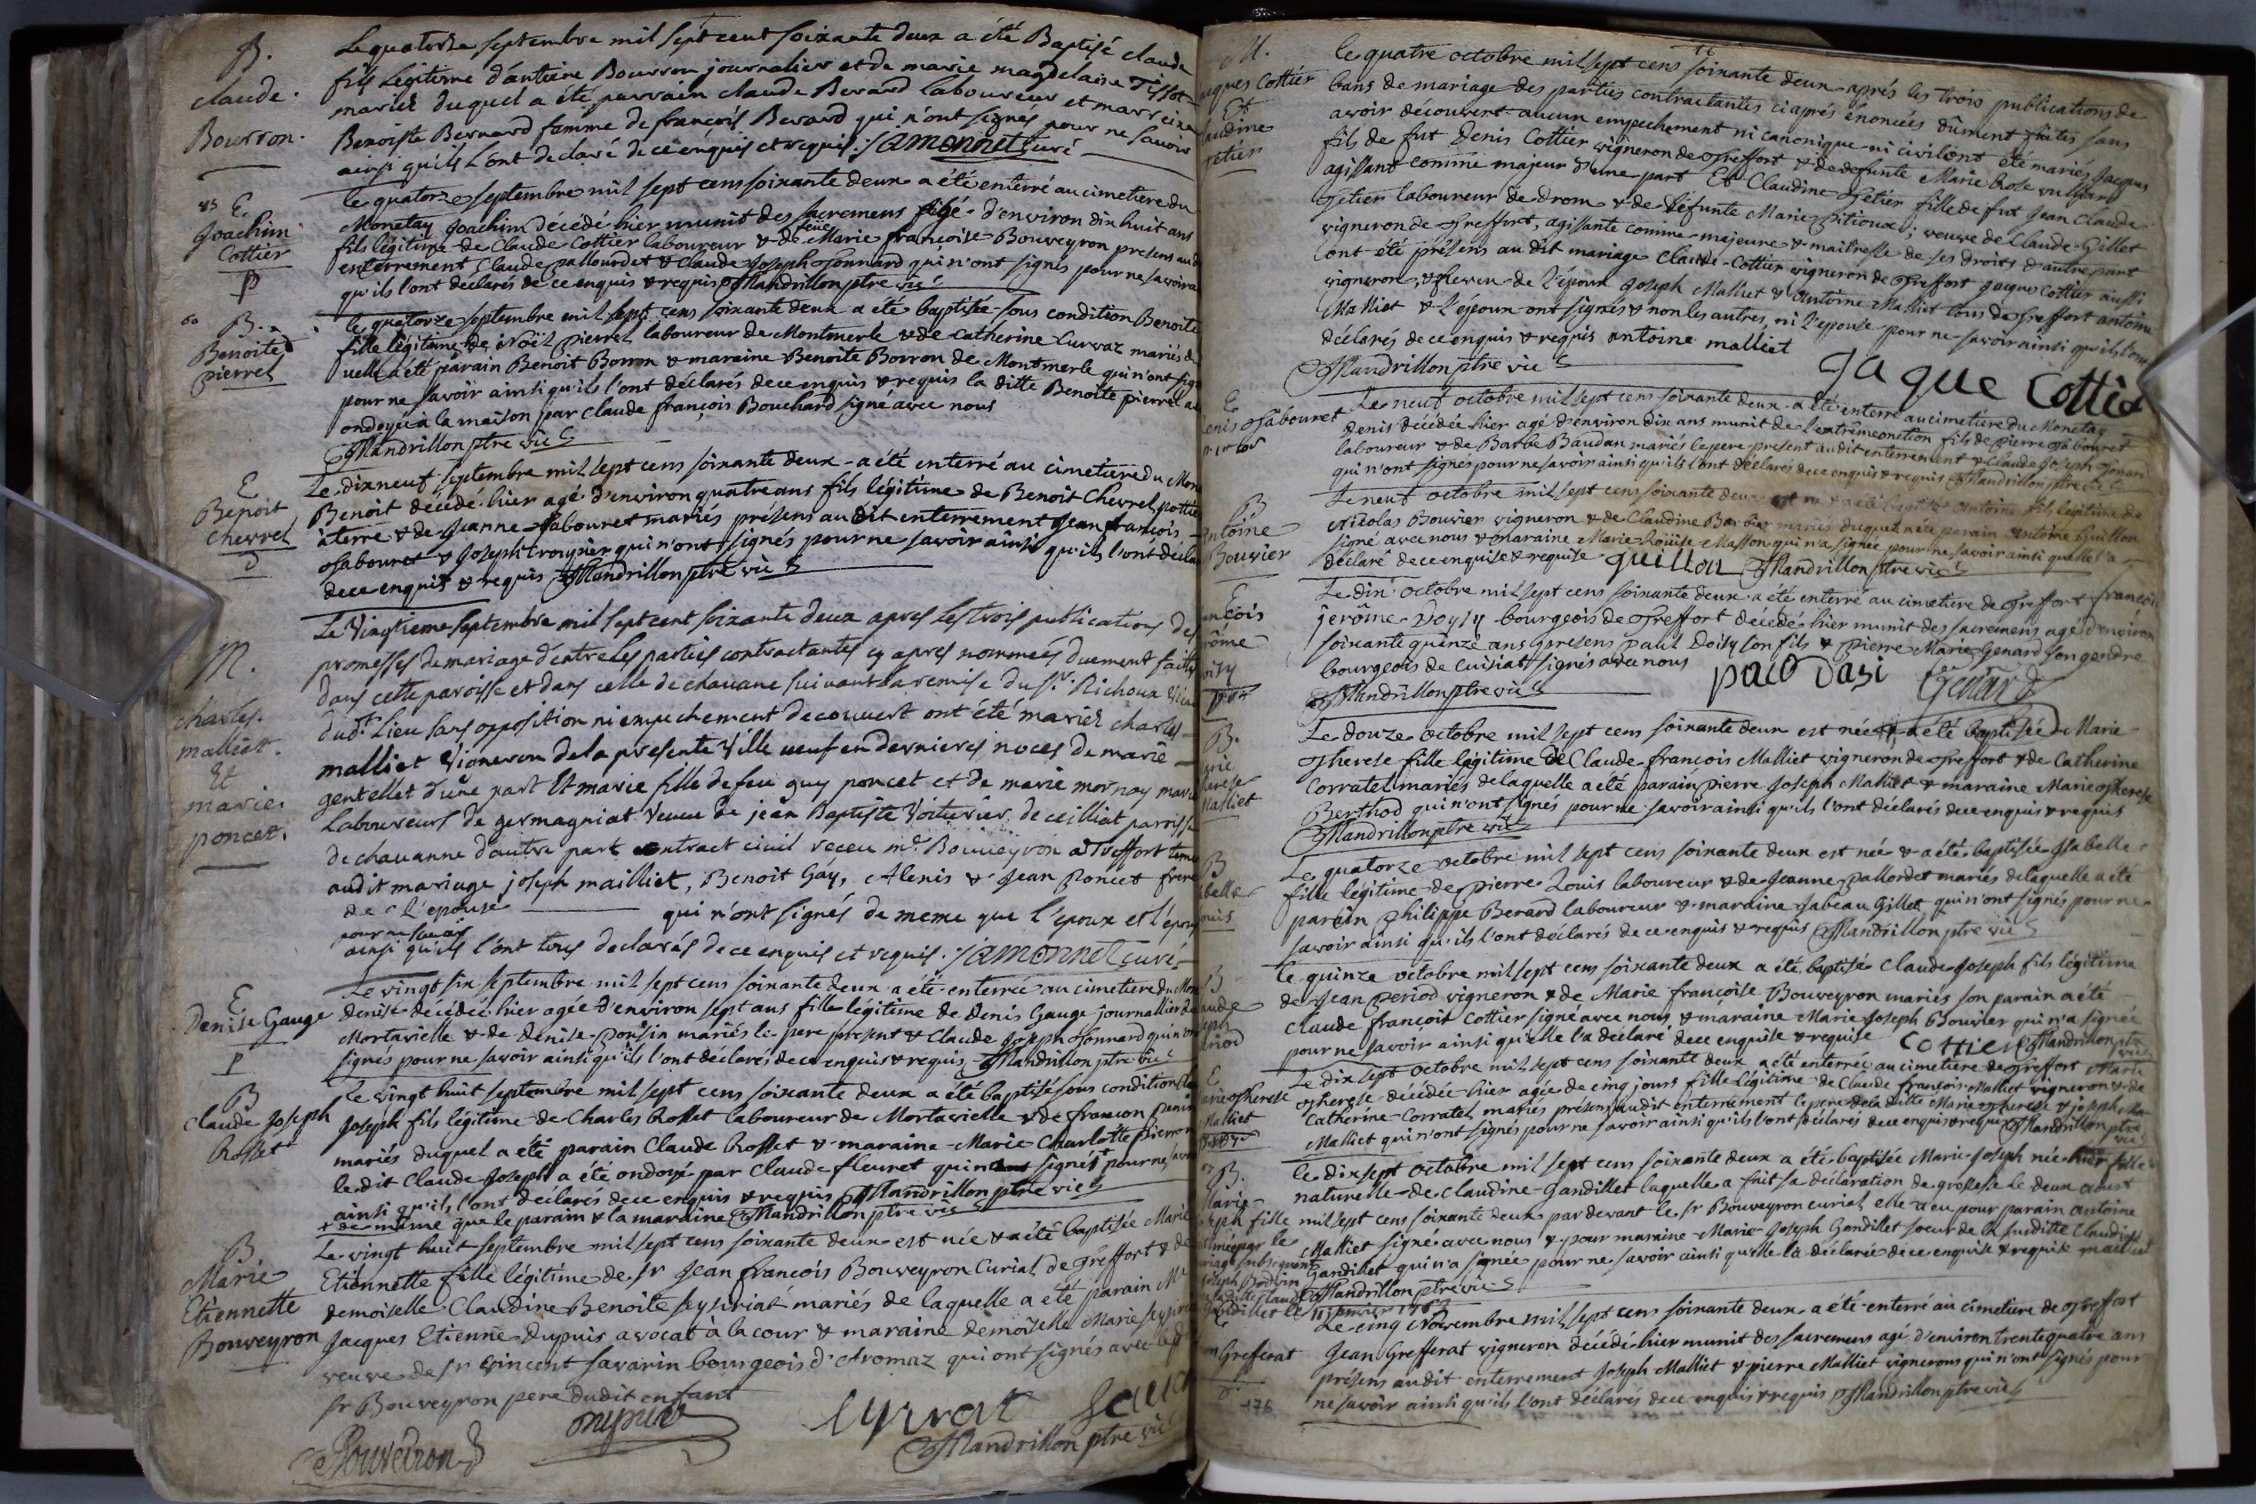 B.
claude.
Bourron.
Le quatorze septembre mil sept cent soixante deux a été Baptisé claude
fils Légitime d'antoine Bourron journalier et de marie magdelaine Tissot
mariez duquel a été parrain claude Berard Laboureur et marreine
Benoiste Bernard famme de françois Berard qui n'ont signes pour ne savoir
ainsi qu'ils L'ont declaré de ce enquis et requis. jamonnet curé
E.
Joachim
Cottier
P
le quatorze septembre mil sept cens soixante deux a été enterré au cimetiere du
Monetay Joachim décédé hier munit des sacremens âgé d'environ dix huit ans
fils légitime de Claude Cottier laboureur & de feue Marie françoise Bouveyron presens au d
enterrement Claude pallourdet & Claude Joseph Jonnard qui n'ont signés pour ne savoir a
qu'ils l'ont déclarés de ce enquis & requis Mandrillon ptre vic
60
B.
Benoite
pierrel
le quatorze septembre mil sept cens soixante deux a été baptisée sous condition Benoite
fille légitime de Noël pierrel laboureur de Montmerle & de Catherine Curvaz mariés de
uelle a été parain Benoit Borron & maraine Benoite Borron de Montmerle qui n'ont sign
pour ne savoir ainsi qu'ils l'ont déclarés de ce enquis & requis la ditte Benoite pierrel a
ondoyé à la maison par claude françois Bouchard signé avec nous
Mandrillon ptre vic
E
Benoit
Chevrel
D
Le dixneuf septembre mil sept cens soixante deux a été enterré au cimetiere du Mon
Benoit décédé hier agé d'environ quatre ans fils légitime de Benoit Chevrel pottier
à terre & de Jeanne Sabouret mariés présens au dit enterrement Jean françois
Sabouret & Joseph troysier qui n'ont signés pour ne savoir ainsi qu'ils l'ont déclar
de ce enquis & requis Mandrillon ptre vic
M.
charles
malliet.
Et
marie
poncet.
Le Vingtieme septembre mil sept cent soixante deux apres les trois publications des
promesses de mariage d'entre les parties contractantes cy apres nommées duement faittes
dans cette paroisse et dans celle de chavane suivant la remise du Sr. Richoux Vica
dud. Lieu sans opposition ni empechement decouvert ont été mariez charles
malliet Vigneron de la presente Ville veuf en dernieres noces de marie
gentellet d'une part Et marie fille de feu guy poncet et de marie mornay marie
Laboureurs de germagniat veuve de jean Baptiste Voiturier de ceilliat parroisse
de chavanne d'autre part contract civil receu me. Bouveyron a Treffort temoin
audit mariage joseph mailliet, Benoit Gay, Alexis & Jean Poncet frere
de l'epouse qui n'ont signés de meme que l'époux et l'epous
pour ne savoir
ainsi qu'ils l'ont tous declarés de ce enquis et requis. jamonnet curé
E
Denise Gauge
P
Le vingt six septembre mil sept cens soixante deux a été enterrée au cimetiere du Mon
denise décédée hier agée d'environ sept ans fille légitime de denis Gauge journallier de
Mortarielle & de denise ponsin mariés le pere présent & Claude Joseph Jonnard qui n'ont
signés pour ne savoir ainsi qu'ils l'ont déclarés de ce enquis & requis Mandrillon ptre vic
B
Claude Joseph
Rosset
Le vingt huit septembre mil sept cens soixante deux a été baptisé sous condition
Joseph fils légitime de Charles Rosset laboureur de Mortarielle & de francon
mariés duquel a été parain Claude Rosset & maraine Marie Charlotte pierron
le dit Claude Joseph a été ondoyé par Claude fleuret qui n'a signés + pour ne savo
ainsi qu'ils l'ont déclarés de ce enquis & requis Mandrillon ptre vic
+ de meme que le parain & la maraine Mandrillon ptre vic
B
Marie
Etiennette
Bouveyron
Le vingt huit septembre mil sept cens soixante deux est née & a été baptisée Marie
Etiennette fille légitime de sr Jean françois Bouveyron Curial de treffort & de
demoiselle Claudine Benoite seysiriat mariés de laquelle a été parain Mr
Jacques Etienne dupuis avocat à la cour & maraine demoiselle Marie seysiria
veuve de sr Vincent savarin bourgeois d'Aromaz qui ont signés avec le d
sr Bouveyron pere dudit enfant
Bouveiron dupuis
Mandrillon ptre vic
M.
acques Cottier
Et
laudine
le quatre octobre mil sept cens soixante deux après les trois publications de
bans de mariage des parties contractantes ci après énoncées dûment faites sans
avoir découvert aucun empechement ni canonique ni civil ont été mariés Jacques
fils de fut Denis Cottier vigneron de treffort & de defunte Marie Rose vuillard
agissant comme majeur d'une part Et Claudine tetier fille de fut Jean Claude
tetier laboureur de drom & de défunte Marie pitioux; veuve de Claude Gillet
vigneron de treffort, agissante comme majeure & maitresse de ses droits d'autre part
ont été présens au dit mariage Claude Cottier vigneron de treffort Jacques Cottier aussi
vigneron, & neveu de l'époux Joseph Malliet & Antoine Malliet tous de treffort antoine
Malliet & l'époux ont signés & non les autres, ni l'epouse pour ne savoir ainsi qu'ils l'ont
déclarés de ce enquis & requis antoine malliet
Mandrillon ptre vic jaque Cottie
E
enis Sabouret
Le neuf octobre mil sept cens soixante deux a été enterré au cimetiere du Monetay
denis décédée hier agé d'environ dix ans munit de l'extrêmeonction fils de pierre Sabouret
laboureur & de Barbe Baudan mariés le pere présent au dit enterrement & Claude Joseph Jonard
qui n'ont signés pour ne savoir ainsi qu'ils l'ont déclarés de ce enquis & requis Mandrillon ptre vic
B
ntoine
Bouvier
Le neuf octobre mil sept cens soixante deux est né & a été baptisé antoine fils légitime de
Nicolas Bouvier vigneron & de Claudine Barbier mariés duquel a été parain antoine Guillon
signé avec nous & maraine Marie Louise Masson qui n'a signée pour ne savoir ainsi quelle l'a
déclaré de ce enquise & requise guillon Mandrillon ptre vic
E
ancois
rôme
Le dix octobre mil sept cens soixante deux a été enterré au cimetiere de treffort françois
jerôme doysy bourgeois de treffort décédé hier munit des sacremens agé d'environ
soixante quinze ans presens paul doisy son fils & pierre Marie Genard son gendre
bourgeois de Cuisiat signés avec nous
Mandrillon ptre vic Genard
B.
arie
herese
Malliet
Le douze octobre mil sept cens soixante deux est née & a été baptisée Marie
therese fille légitime de Claude françois Malliet vigneron de treffort & de Catherine
Corratel mariés de laquelle a été parain pierre Joseph Malliet & maraine Marie therese
Berthod qui n'ont signés pour ne savoir ainsi qu'ils l'ont déclarés de ce enquis & requis
Mandrillon ptre vic
B
abelle
ouis
Le quatorze octobre mil sept cens soixante deux est née & a été baptisée Isabelle
fille légitime de pierre Louis laboureur & de Jeanne pallordet mariés de laquelle a été
parain philippe Berard laboureur & maraine Isabeau Gillet qui n'ont signés pour ne
savoir ainsi qu'ils l'ont déclarés de ce enquis & requis Mandrillon ptre vic
B
aude
seph
eriod
le quinze octobre mil sept cens soixante deux a été baptisé Claude Joseph fils légitime
de Jean period vigneron & de Marie françoise Bouveyron mariés son parain a été
claude françois Cottier signé avec nous & maraine Marie Joseph Bouvier qui n'a signée
pour ne savoir ainsi qu'elle l'a déclaré de ce enquise & requise Cottier Mandrillon ptre vic
E
arie therese
Malliet
Le dix sept octobre mil sept cens soixante deux a été enterrée au cimetiere de treffort Marie
therese décédée hier agée de cinq jours fille légitime de Claude françois Malliet vigneron & de
Catherine Corratel mariés présens au dit enterrement le pere de la ditte Marie therese & joseph Ma
Malliet qui n'ont signés pour ne savoir ainsi qu'ils l'ont déclarés de ce enquis & requis Mandrillon ptre vic
B.
Marie
oseph fille
Le dixsept octobre mil sept cens soixante deux a été baptisée Marie Joseph née hier fille
naturelle de Claudine Gandillet laquelle a fait sa déclaration de grossesse le deux aoust
mil sept cens soixante deux par devant le sr Bouveyron curial elle a eu pour parain antoine
Malliet signé avec nous & pour maraine Marie Joseph Gandillet soeur de la suditte Claudine
Gandillet qui n'a signée pour ne savoir ainsi qu'elle l'a déclarée de ce enquise & requise malliet
Mandrillon ptre vic
E
Grefferat
176
Le cinq Novembre mil sept cens soixante deux a été enterré au cimetiere de treffort
Jean Grefferat vigneron décédé hier munit des sacremens agé d'environ trentequatre ans
présens au dit enterrement Joseph Malliet & pierre Malliet vignerons qui n'ont signés pour
ne savoir ainsi qu'ils l'ont déclarés de ce enquis & requis Mandrillon ptre vic